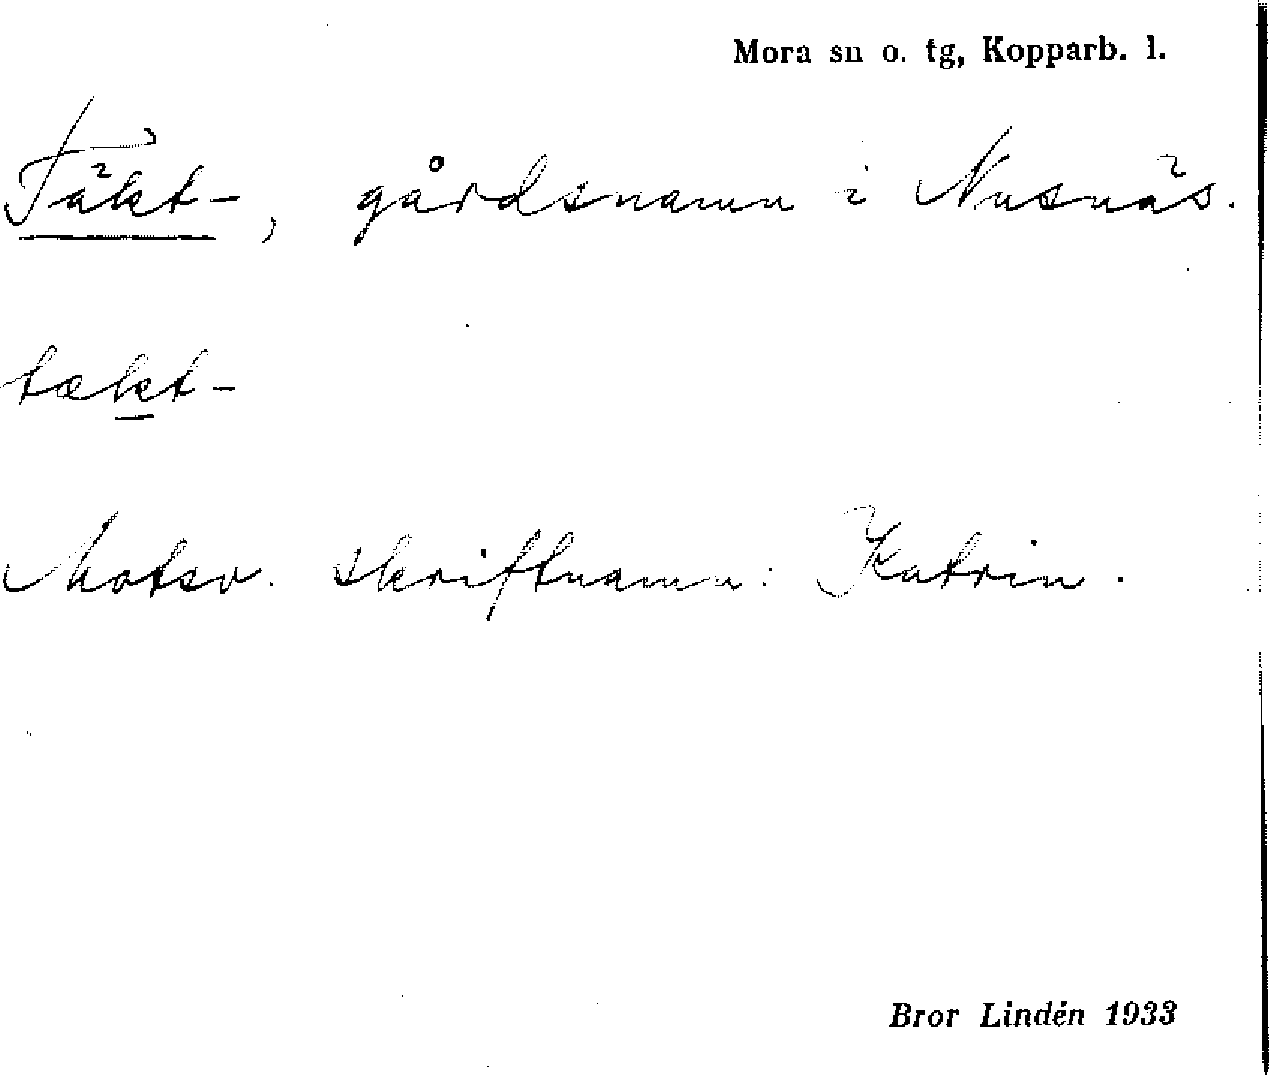 Mora sn o. tg, Kopparb. l.
Täkt-, gårdsnamn i Nusnäs.
tækt-
Motsv. skriftnamn: Katrin.
Bror Lindén 1933